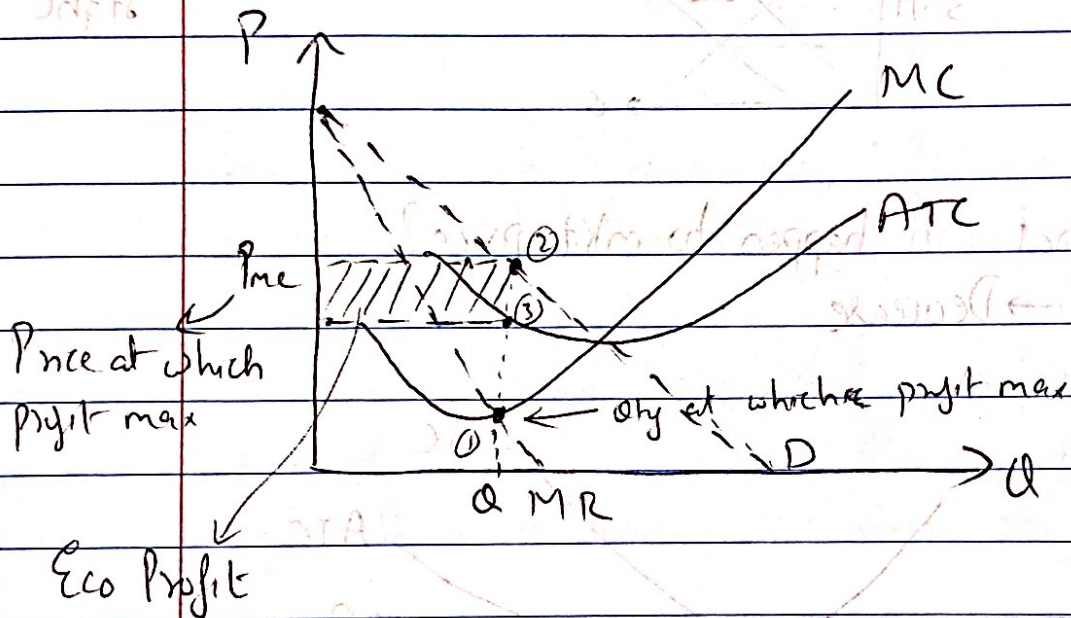 P
MC
ATC
②
Pmc
③
Price at which
profit max
Qty at which profit max
①
D
Q
Q MR
Eco Profit